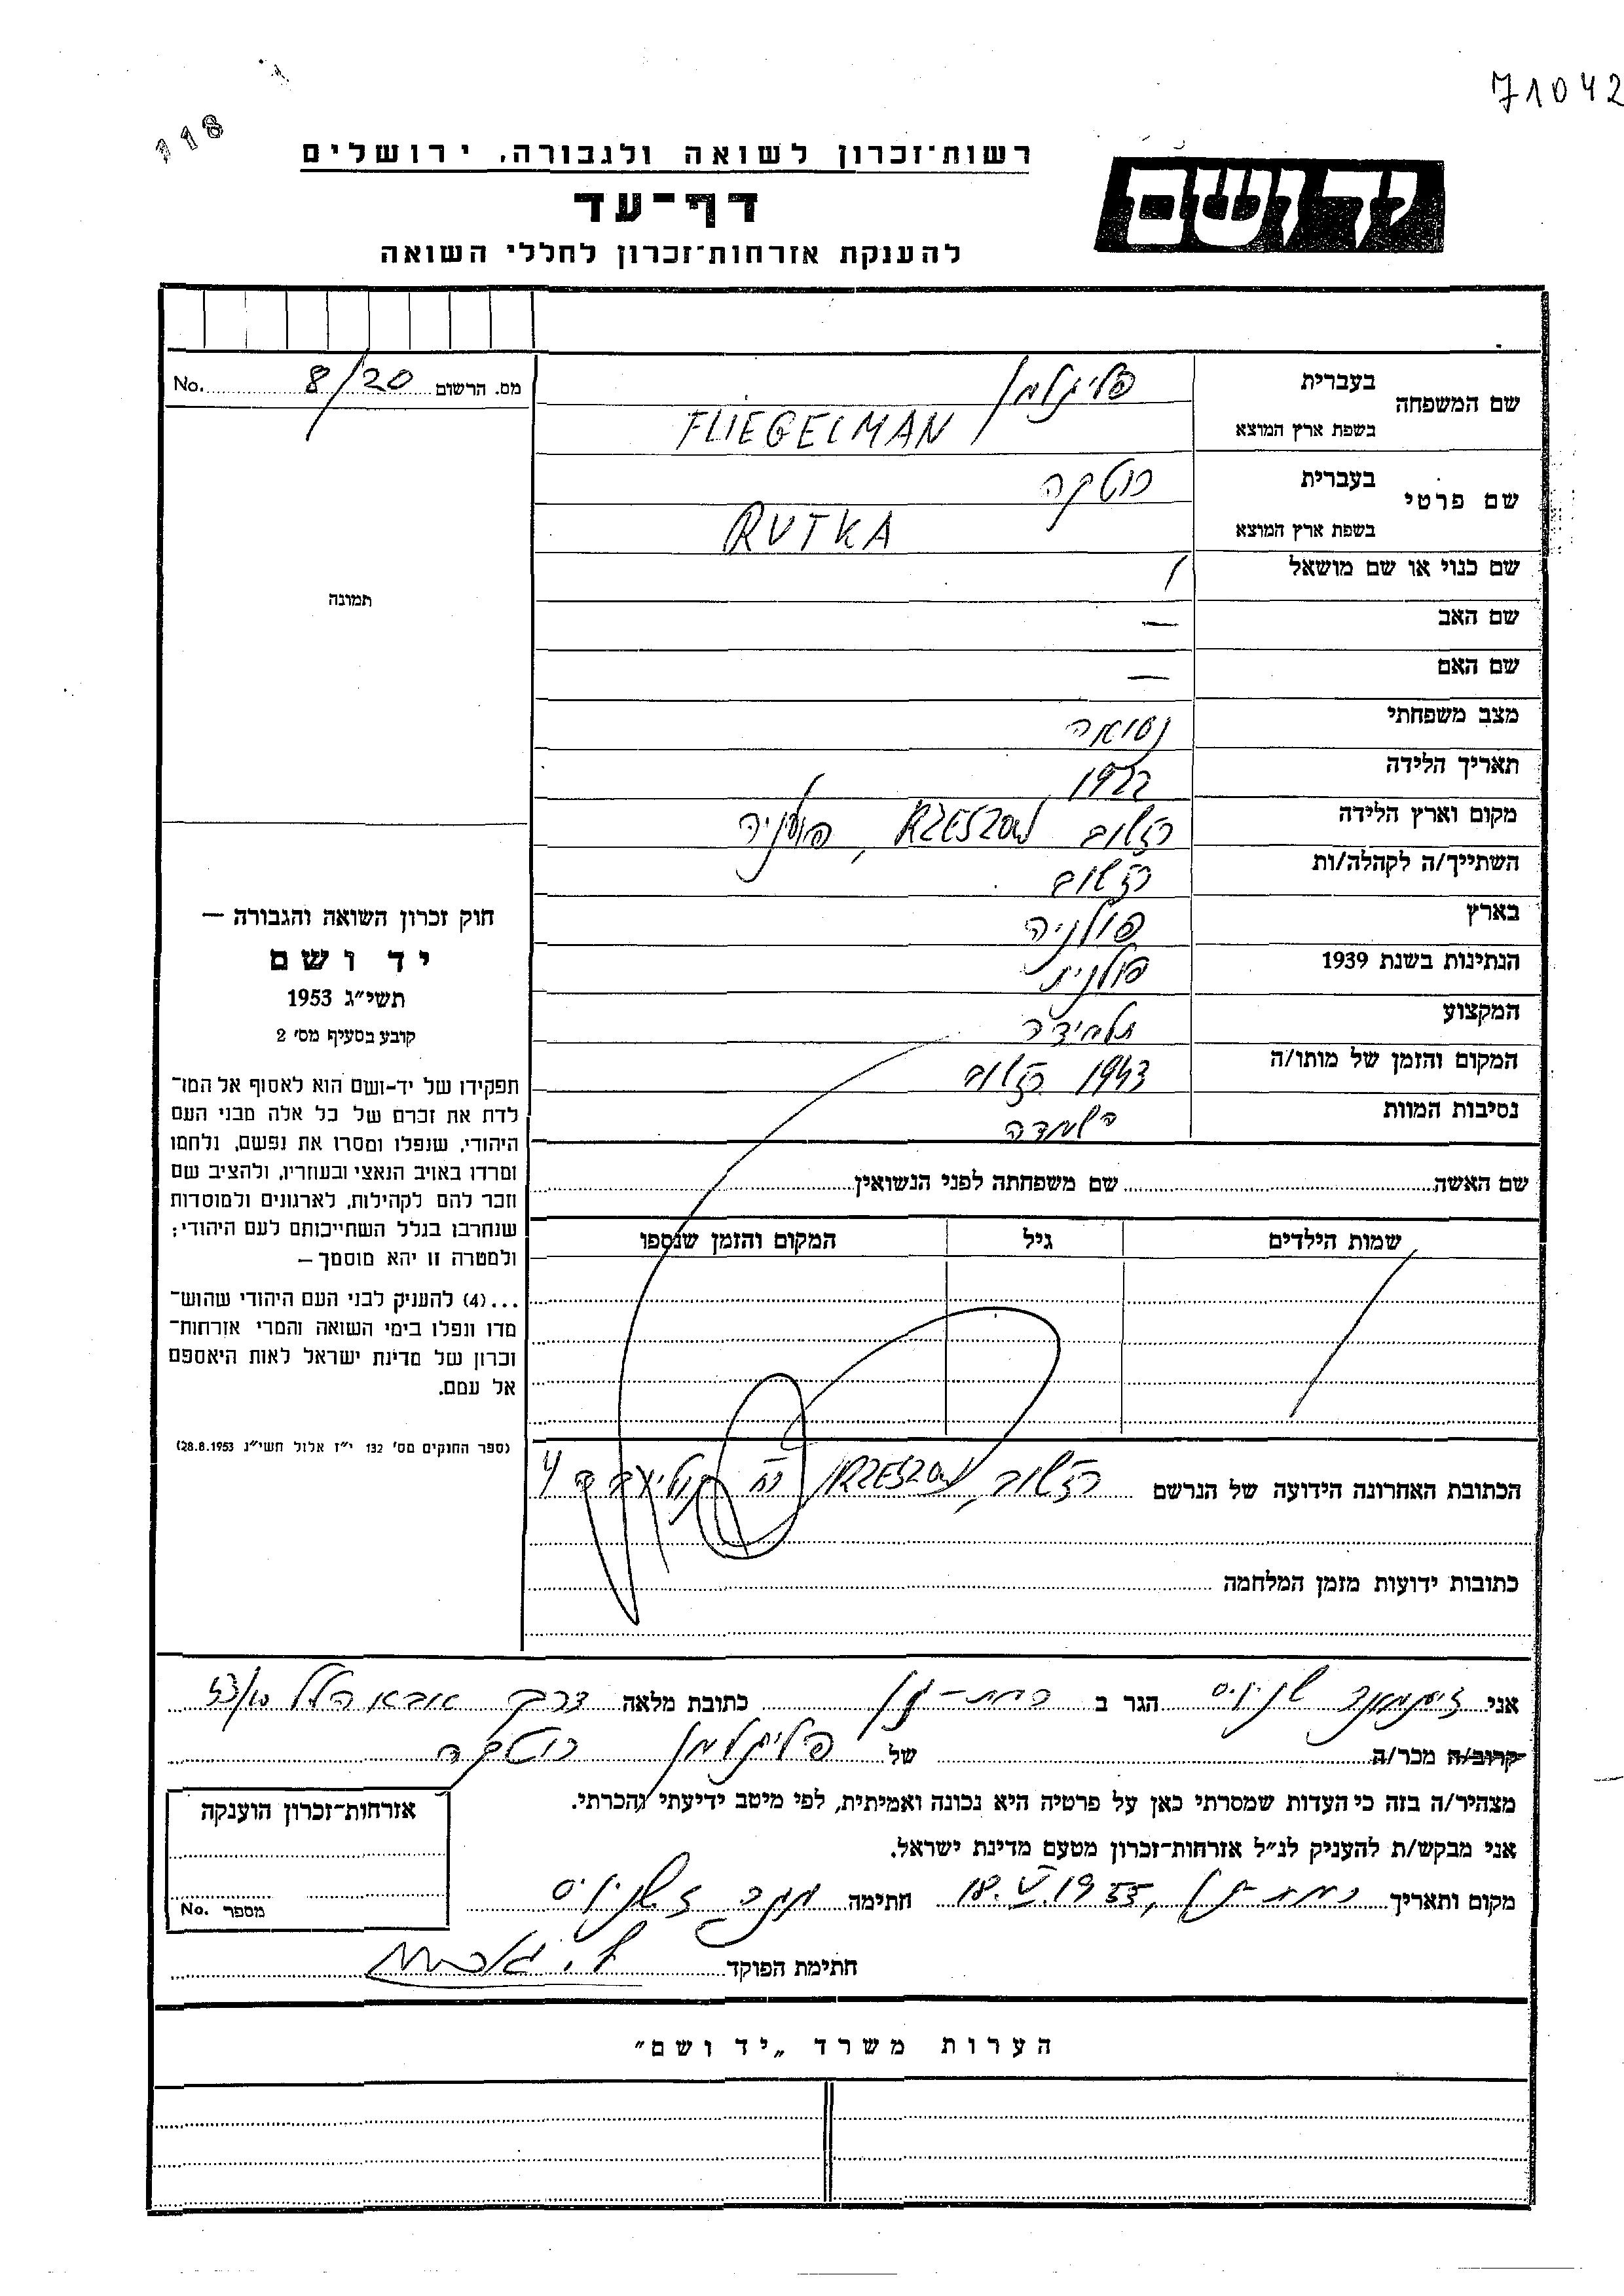 71042
118
רשות־זכרון לשואה ולגבורה, ירושלים
יד ושם
דף־עד
להענקת אזרחות־זכרון לחללי השואה
מס. הרשום 8/20 No.
שם המשפחה
בעברית פליגלמן
בשפת ארץ המוצא FLIEGELMAN
שם פרטי
בעברית רוטקה
בשפת ארץ המוצא RUTKA
שם כנוי או שם מושאל /
שם האב —
שם האם —
מצב משפחתי נשואה
תאריך הלידה 1922
מקום וארץ הלידה רזשוב RZESZOW, פולניה
השתייך/ה לקהלה/ות רזשוב
בארץ פולניה
הנתינות בשנת 1939 פולנית
המקצוע תלמידה
המקום והזמן של מותו/ה 1943 רזשוב
נסיבות המוות השמדה
תמונה
חוק זכרון השואה והגבורה —
יד ושם
תשי״ג 1953
קובע בסעיף מס׳ 2
תפקידו של יד-ושם הוא לאסוף אל המו־
לדת את זכרם של כל אלה מבני העם
היהודי, שנפלו ומסרו את נפשם, נלחמו
ומרדו באויב הנאצי ובעוזריו, ולהציב שם
וזכר להם לקהילות, לארגונים ולמוסדות
שנחרבו בגלל השתייכותם לעם היהודי;
ולמטרה זו יהא מוסמך —
...(4) להעניק לבני העם היהודי שהוש־
מדו ונפלו בימי השואה והמרי אזרחות־
זכרון של מדינת ישראל לאות היאספם
אל עמם.
(ספר החוקים מס׳ 132 י״ז אלול תשי״ג 28.8.1953)
שם האשה שם משפחתה לפני הנשואין
שמות הילדים גיל המקום והזמן שנספו
הכתובת האחרונה הידועה של הנרשם רזשוב, RZESZOW רח 4
כתובות ידועות מזמן המלחמה
אני הגר ב רמת-גן כתובת מלאה דרך אבא הלל 53/10
קרוב/ה מכר/ה של פליגלמן רוטקה
מצהיר/ה בזה כי העדות שמסרתי כאן על פרטיה היא נכונה ואמיתית, לפי מיטב ידיעתי והכרתי.
אני מבקש/ת להעניק לנ״ל אזרחות־זכרון מטעם מדינת ישראל.
מקום ותאריך רמת גן, 18.V.1955 חתימה
חתימת הפוקד
אזרחות־זכרון הוענקה
מספר No.
הערות משרד „יד ושם״